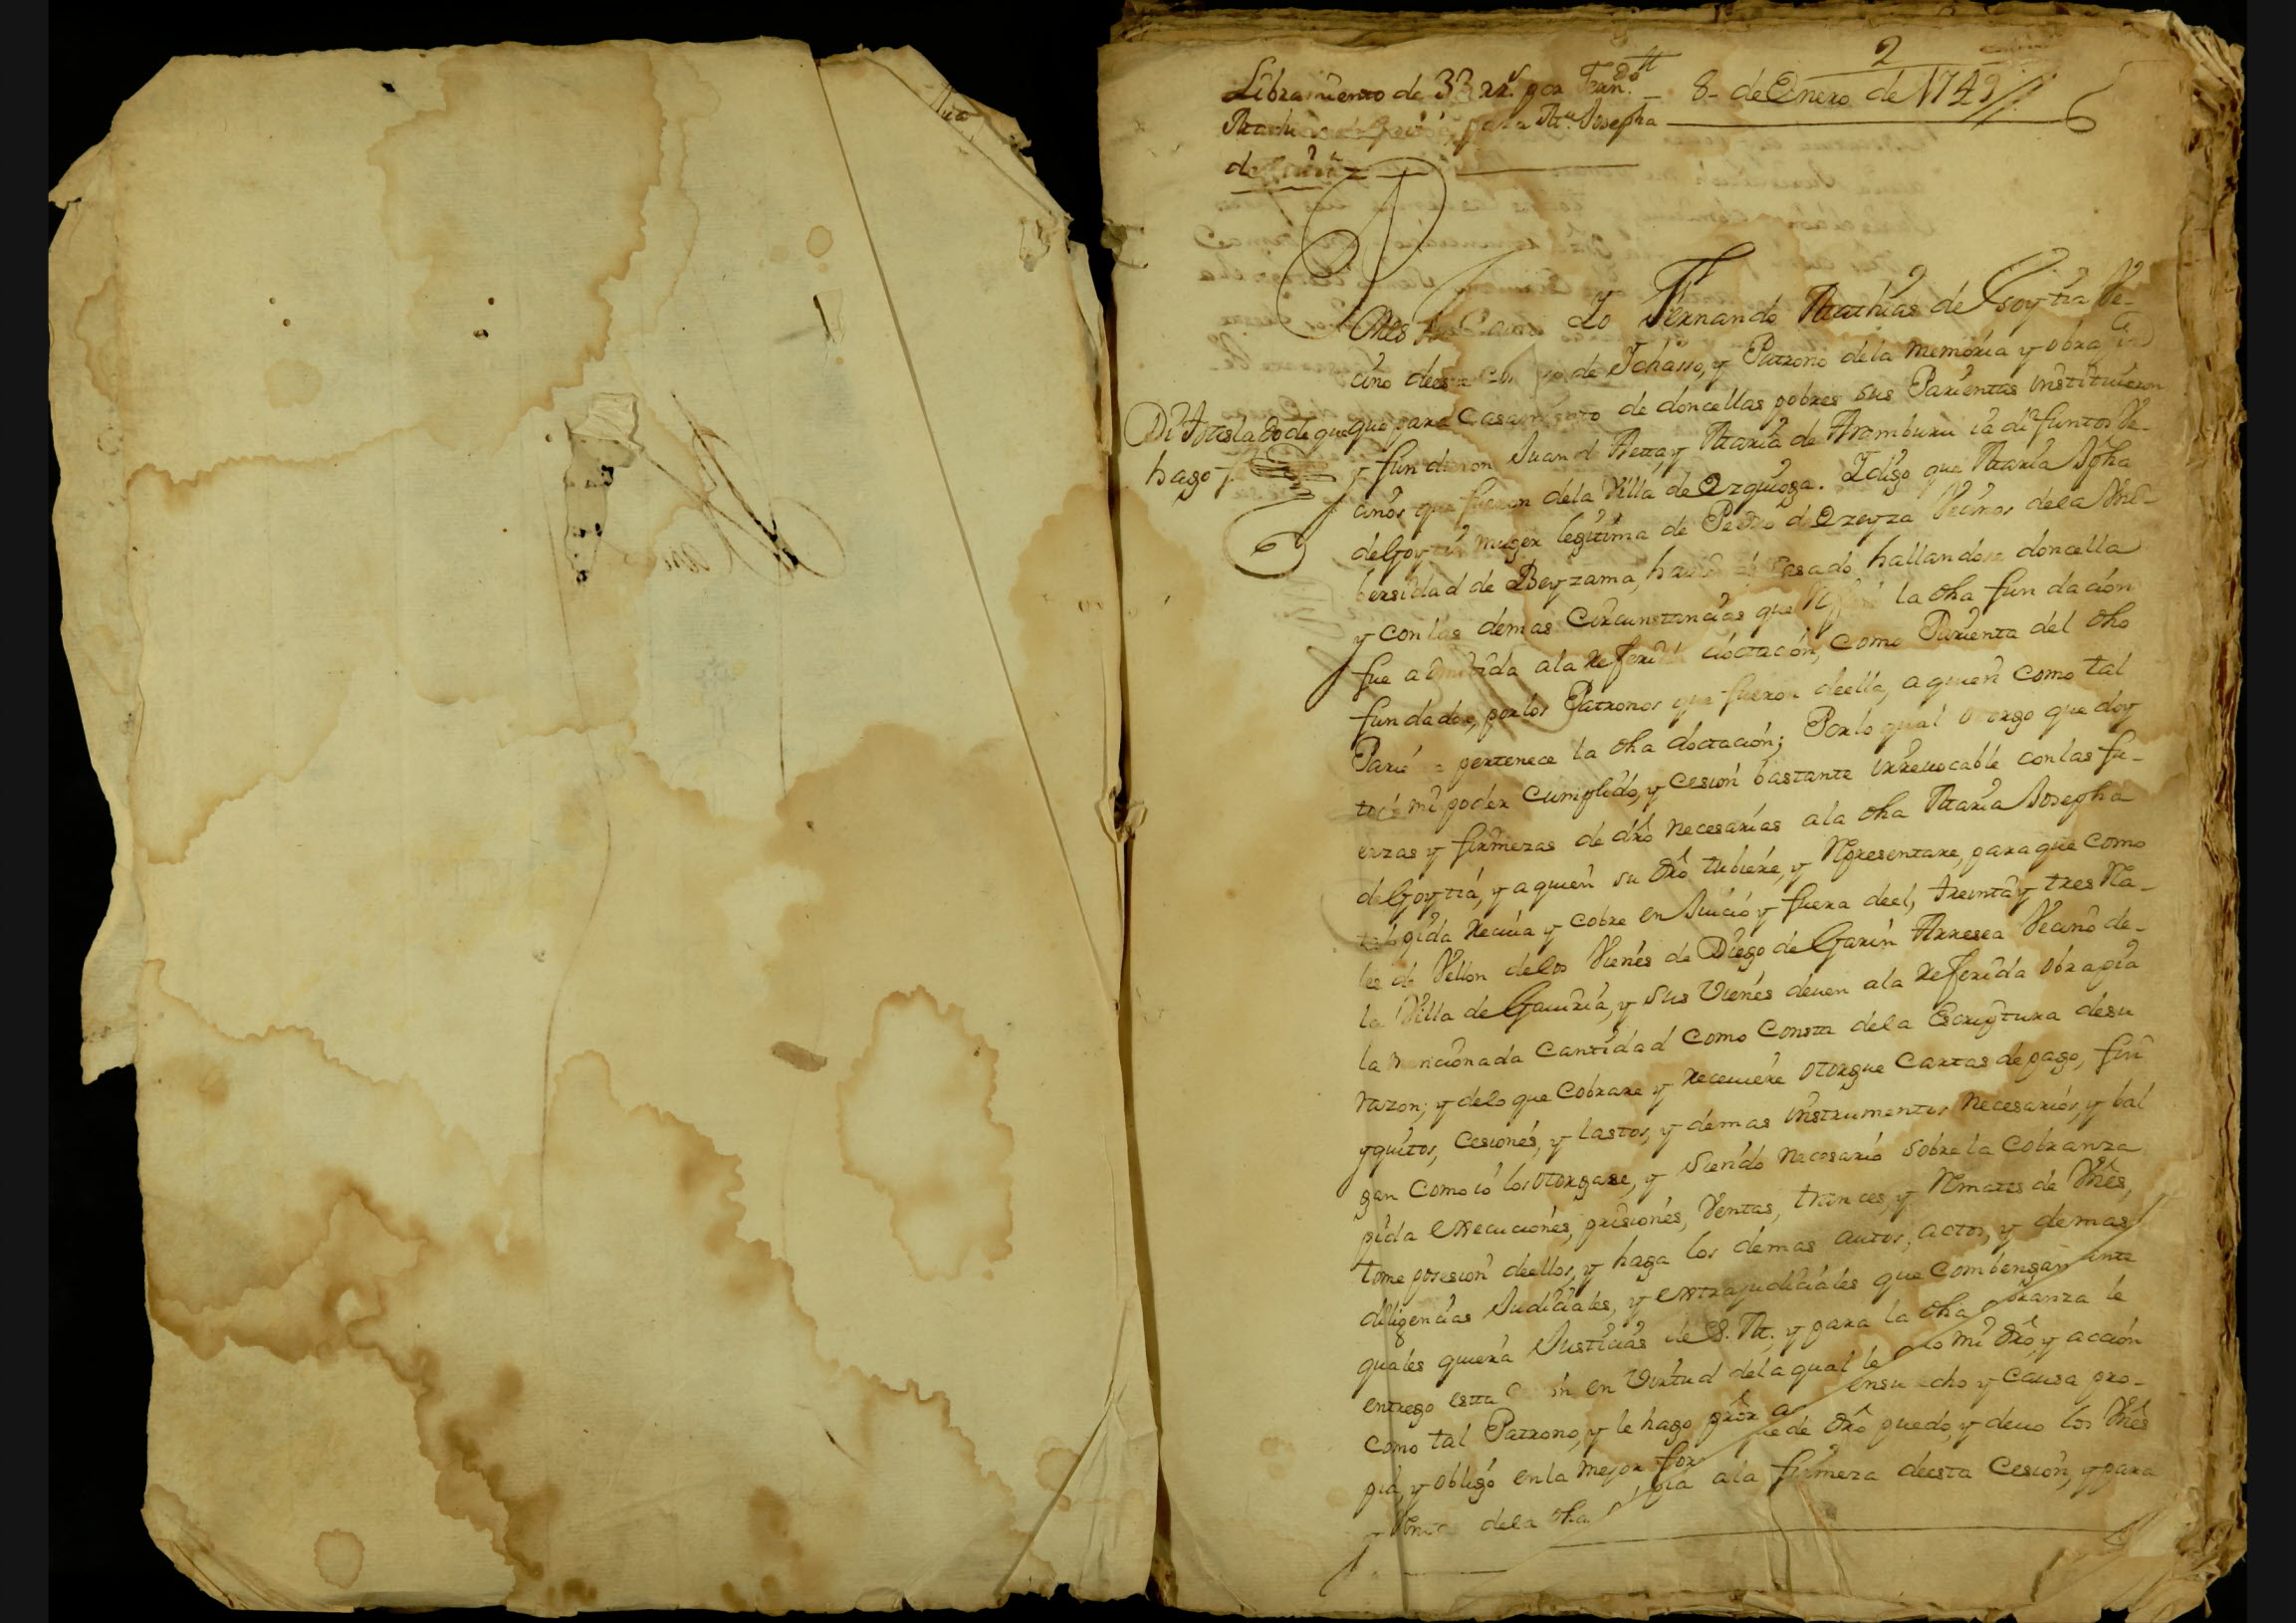 2
Libramiento de 33 rr.s por Fern.do
8 de Enero de 1749
Mathias de Goitia, para M.a Josepha
de Goitia
Yo Fernando Mathias de Goytia Ve-
cino de este de Ichasso, y Patrono dela memoria y obra pia
que para Casamiento de doncellas pobres sus Parientas instituieron
Di traslado de que
hago fee
y fundaron Juan de Aetta, y Maria de Aramburu ia difuntos Ve-
cinos que fueron dela Villa de Ezquioga. Y digo que Maria Jpha
de Goytia muger legitima de Pedro de Ozeyza Vecinos dela Uni-
bersidad de Beyzama, casado hallandose doncella
y con las demas Circunstancias que la dha fundacion
fue admitida ala referida dotacion, como Parienta del dho
fundador, por los Patronos que fueron de ella, a quien como tal
Parienta pertenece la dha dotacion; Por lo qual otorgo que doy
todo mi poder Cumplido, y Cesion bastante irrevocable con las fu-
erzas y firmezas de dro necesarias ala dha Maria Josepha
de Goytia, y a quien su dro tubiere, y Representare, para que como
tal pida reciva y cobre en Juicio y fuera de el, treinta y tres Rea-
les de Vellon delos Vienes de Diego de Garin Arresea Vecino de-
la Villa de Gaviria, y sus Vienes deven ala referida obra pia
la mencionada Cantidad como Consta dela Escriptura de su
razon; y delo que Cobrare y receviere otorgue Cartas de pago, fin
y quitos, Cesiones, y lastos, y demas instrumentos necesarios, y bal
gan como io los otorgase, y siendo necesario sobre la Cobranza
pida execuciones, prisiones, Ventas, trances, y Remates de Vnes,
tome posesion de ellos, y haga los demas autos, actos, y demas
diligencias Judiciales, y extrajudiciales que Combengan ante
quales quiera Justicias de S. M. y para la dha cobranza le
entrego esta en Virtud dela qual le mi dro, y accion
como tal Patrono, y le hago pror en su echo y Causa pro-
pia, y obligo en la mejor forma que de dro puedo, y devo los Vnes
y dela dha pia ala firmeza de esta Cesion, y para